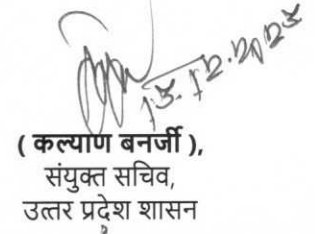 15.12.2025
( कल्याण बनर्जी ),
संयुक्त सचिव,
उत्तर प्रदेश शासन